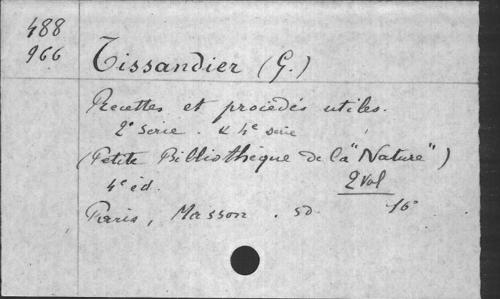 488
966
Tissandier (G.)
Recettes et procédés utiles.
2e serie. & 4e serie
(Petite Bibliothèque de la "Nature")
4e éd. 2 vol
Paris, Masson. sd. 16°